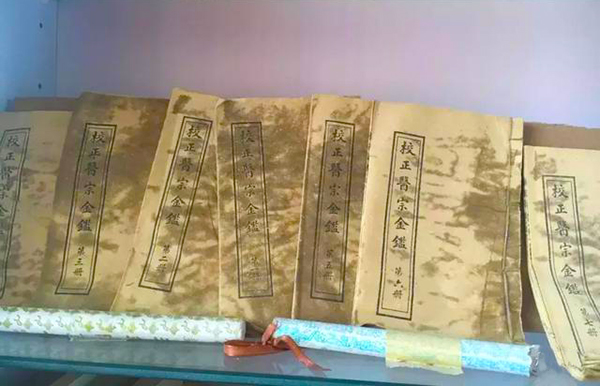 校正醫宗金鑑
校正醫宗金鑑 第三册
校正醫宗金鑑 第二册
校正醫宗金鑑
校正醫宗金鑑 第五册
校正醫宗金鑑 第六册
校正醫宗金鑑 第七册